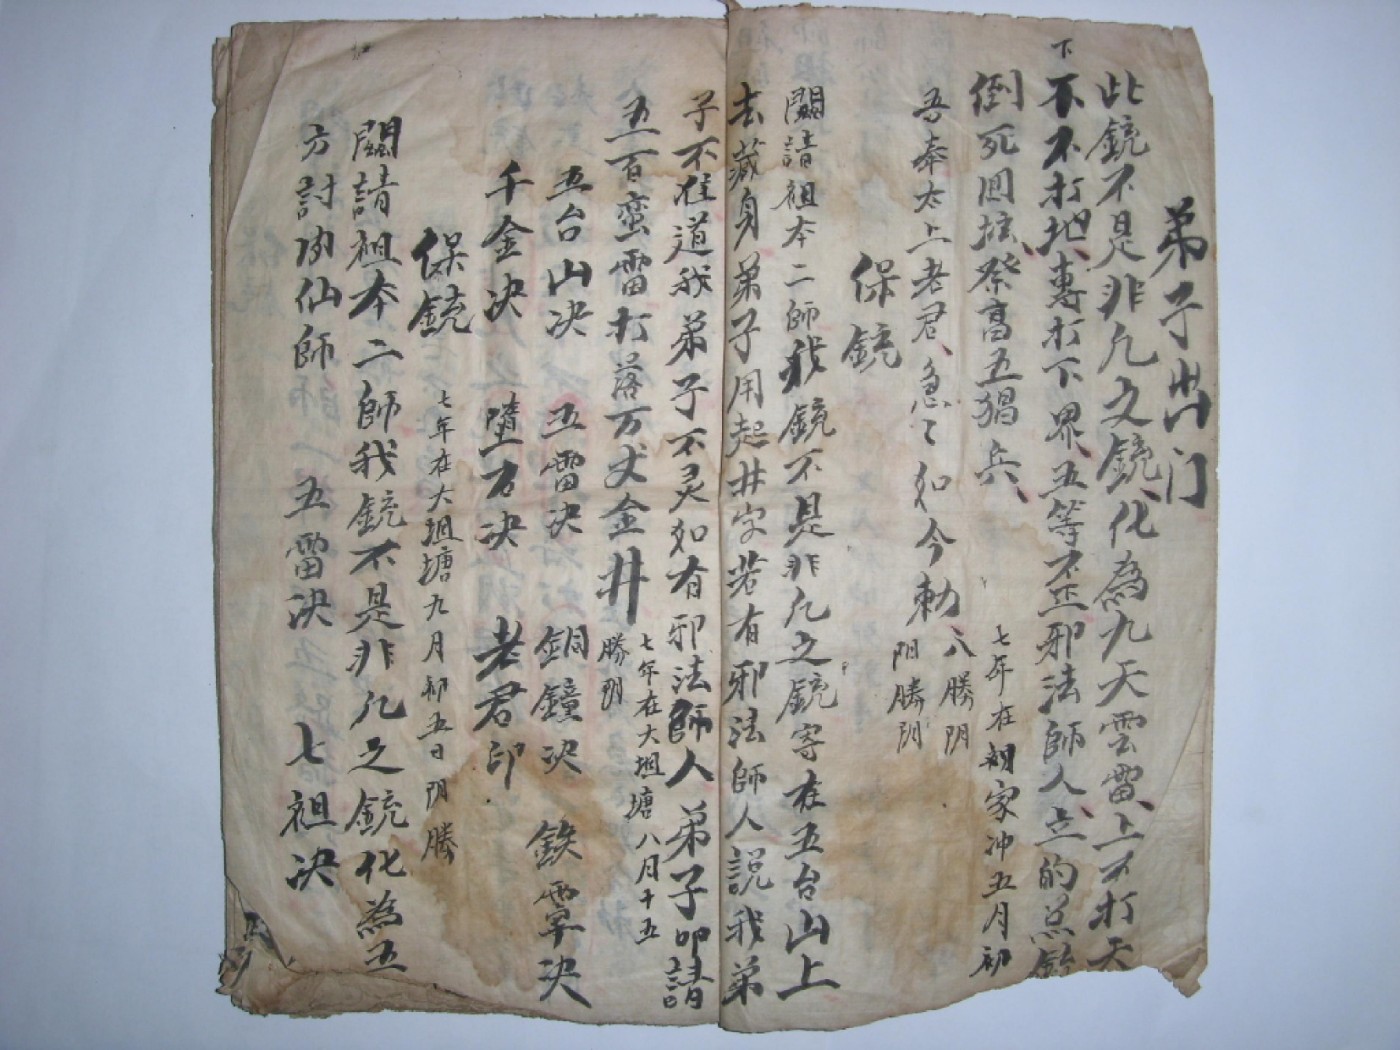 弟子出门
此銃不是非凡之銃化為九天雲雷上不打天
下不打地專打下界五等不正邪法師人
倒死回壇祭高五猖兵
七年在胡家冲五月初
八勝阴
阳勝阴
吾奉太上老君急〻如今勅
保銃
闘請祖本二師我銃不是非凡之銃寄在五台山上
去藏身弟子用起井字若有邪法師人說我弟
子不准道我弟子不灵如有邪法師人弟子叩請
五百蛮雷打落万丈金井
七年在大坦塘八月十五
勝阴
五台山决 五雷决 銅鐘决 鉄雲决
千金决 墮方决 老君印
保銃
七年在大坦塘九月初五日阴勝
闘請祖本二師我銃不是非凡之銃化為五
方討仙師 五雷决 七祖决